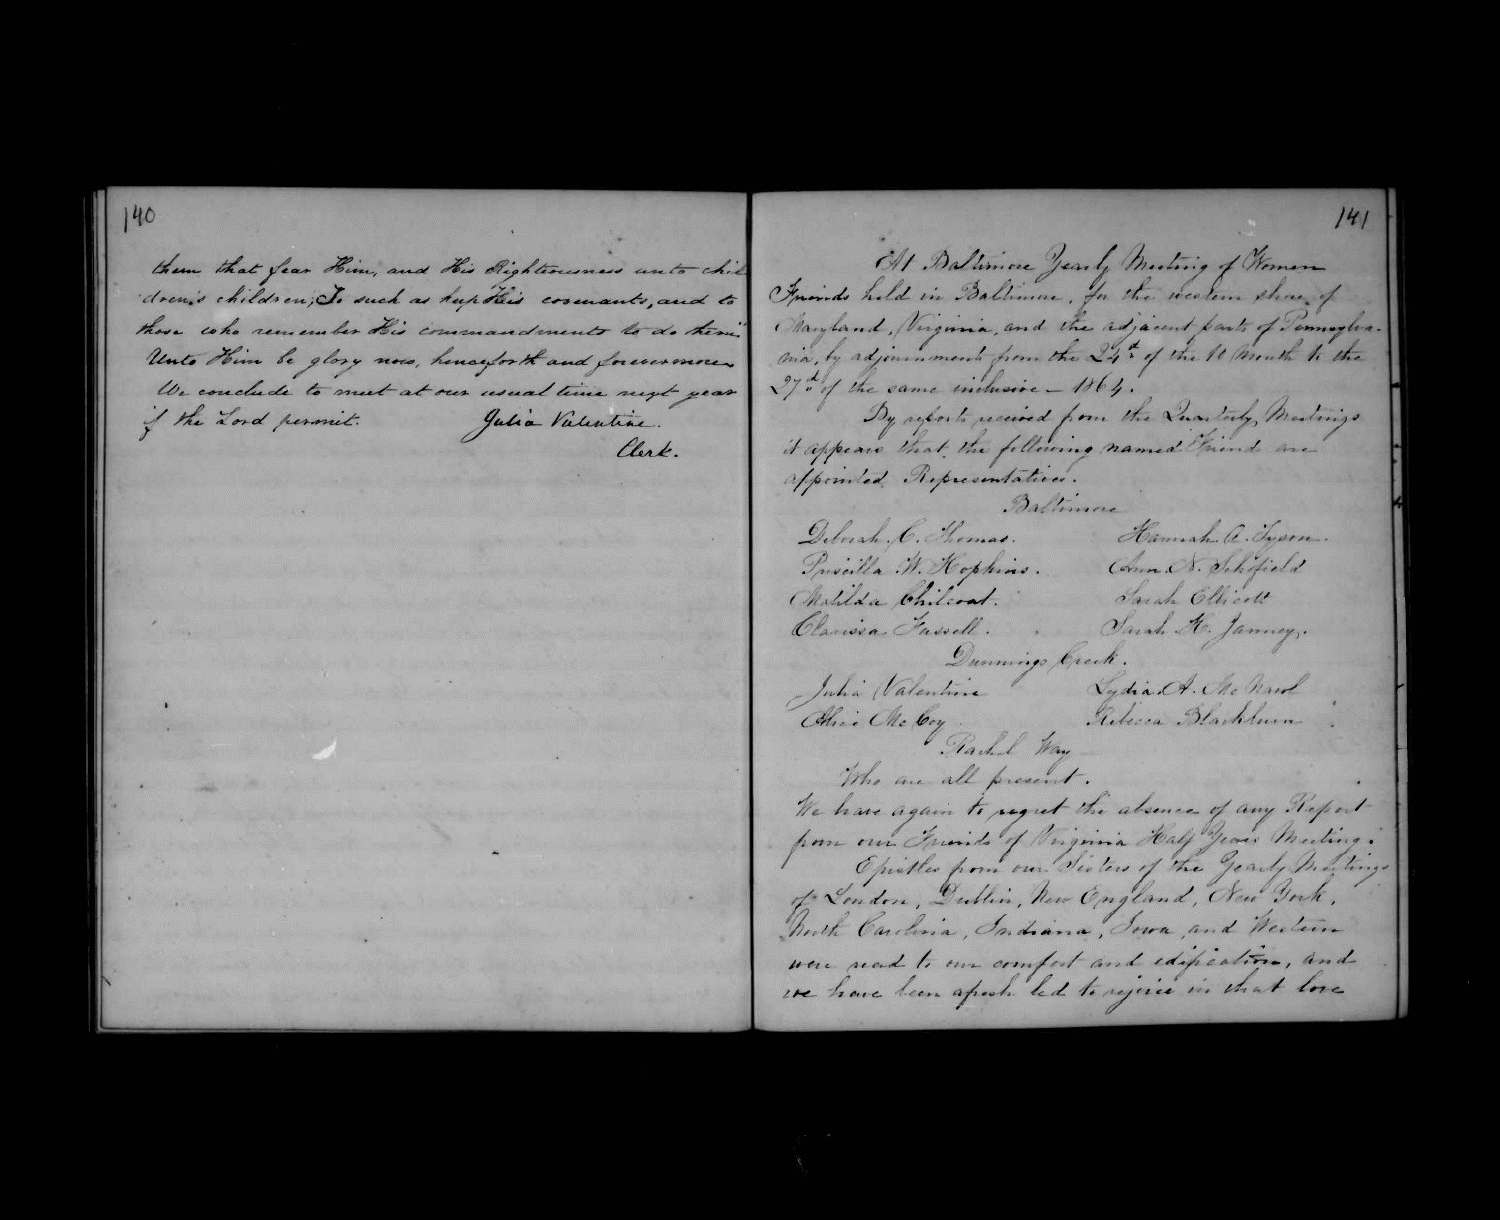 140
them that fear Him, and His Righteousness unto chil
dren's children; To such as keep His covenants, and to
those who remember His commandments to do them"
Unto Him be glory now, henceforth and forevermore
We conclude to meet at our usual time next year
if the Lord permit. Julia Valentine.
Clerk.
141
At Baltimore Yearly Meeting of Women
Friends held in Baltimore, for the western shore of
Maryland, Virginia, and the adjacent parts of Pennsylva-
nia, by adjournments from the 24th of the 10 Month to the
27th of the same inclusive – 1864.
By reports received from the Quarterly Meetings
it appears that the following named Friend are
appointed Representatives.
Baltimore
Deborah C. Thomas. Hannah A. Tyson.
Priscilla W. Hopkins. Ann N. Schofield
Matilda Chilcoat. Sarah Ellicott
Clarissa Fussell. Sarah H. Janney.
Dunnings Creek.
Julia Valentine Lydia A.
Alice McCoy Rebecca Blackburn
Rachel Way
Who are all present.
We have again to regret the absence of any Report
from our Friends of Virginia Half Years Meeting.
Epistles from our Sisters of the Yearly Meetings
of London, Dublin, New England, New York,
North Carolina, Indiana, Iowa and Western
were read to our comfort and edification, and
we have been afresh led to rejoice in that love